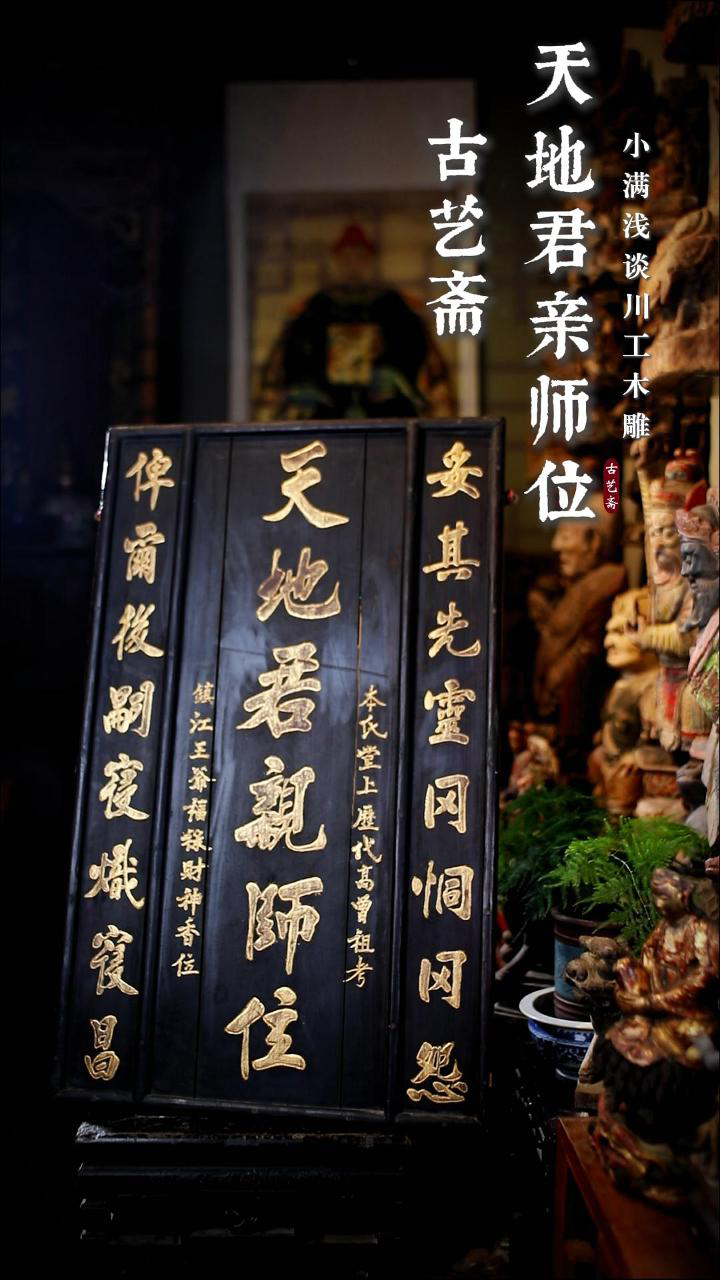 小满浅谈川工木雕
天地君亲师位
古艺斋
古艺斋
妥其先靈冈恫冈怨
本氏堂上歷代高曾祖考
天地君親師位
鎮江王爺福祿財神香位
俾爾後嗣寖熾寖昌